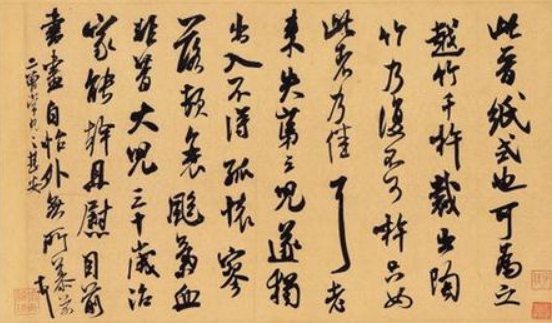 此晉紙式也可為之
越竹千杵裁出陶
竹乃復不可杵只如
此者乃佳耳老
來失第三兒遂獨
出入不得孤懷寥
落頓衰颯氣血
非昔大兒三十歲治
家能幹且慰目前
書畫自怡外無所慕芾